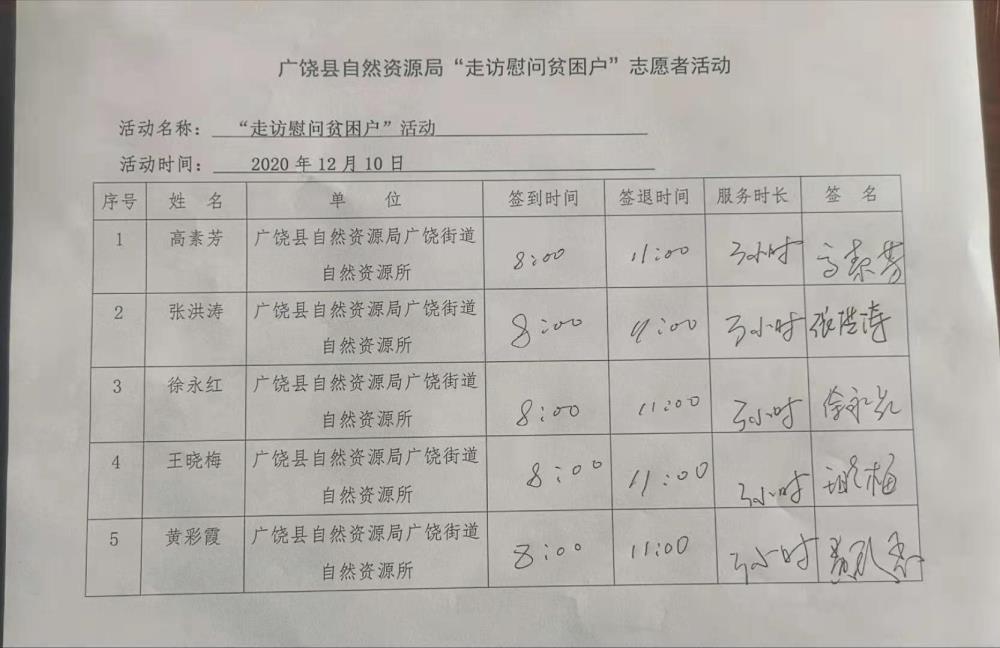 广饶县自然资源局“走访慰问贫困户”志愿者活动
活动名称：“走访慰问贫困户”活动
活动时间：2020 年 12 月 10 日
序号 姓 名 单 位 签到时间 签退时间 服务时长 签 名
1 高素芳 广饶县自然资源局广饶街道 8:00 11:00 3小时 高素芳
自然资源所
2 张洪涛 广饶县自然资源局广饶街道 8:00 11:00 3小时 张洪涛
自然资源所
3 徐永红 广饶县自然资源局广饶街道 8:00 11:00 3小时 徐永红
自然资源所
4 王晓梅 广饶县自然资源局广饶街道 8:00 11:00 3小时 王晓梅
自然资源所
5 黄彩霞 广饶县自然资源局广饶街道 8:00 11:00 3小时 黄彩霞
自然资源所